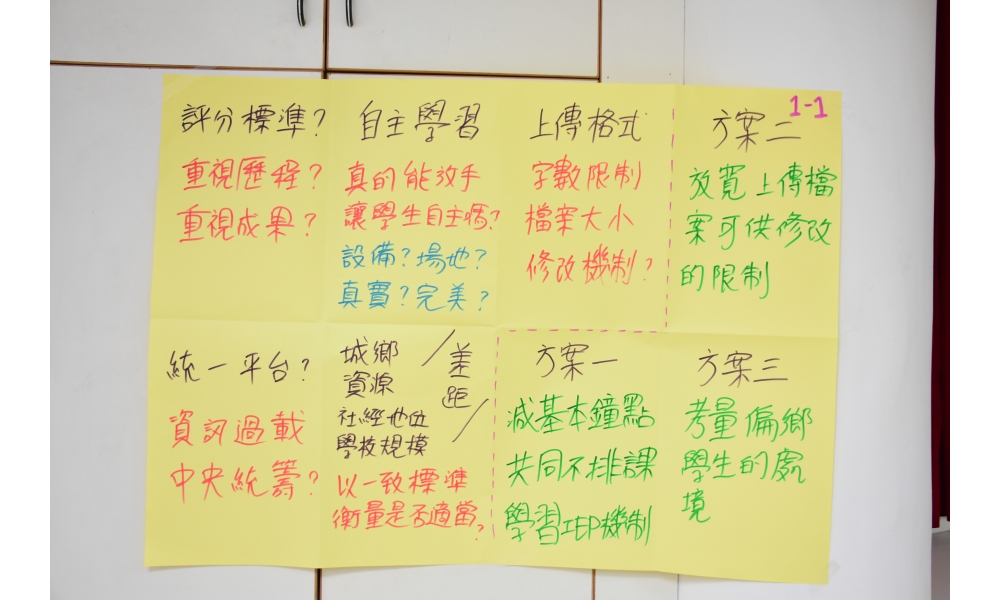 1-1
評分標準?
重視歷程?
重視成果?
自主學習
真的能放手
讓學生自主嗎?
設備?場地?
真實?完美?
上傳格式
字數限制
檔案大小
修改機制?
方案二
放寬上傳檔
案可供修改
的限制
統一平台?
資訊過載
中央統籌?
城鄉
資源
社經地位
學校規模
差
距
以一致標準
衡量是否適當?
方案一
減基本鐘點
共同不排課
學習IEP機制
方案三
考量偏鄉
學生的處
境